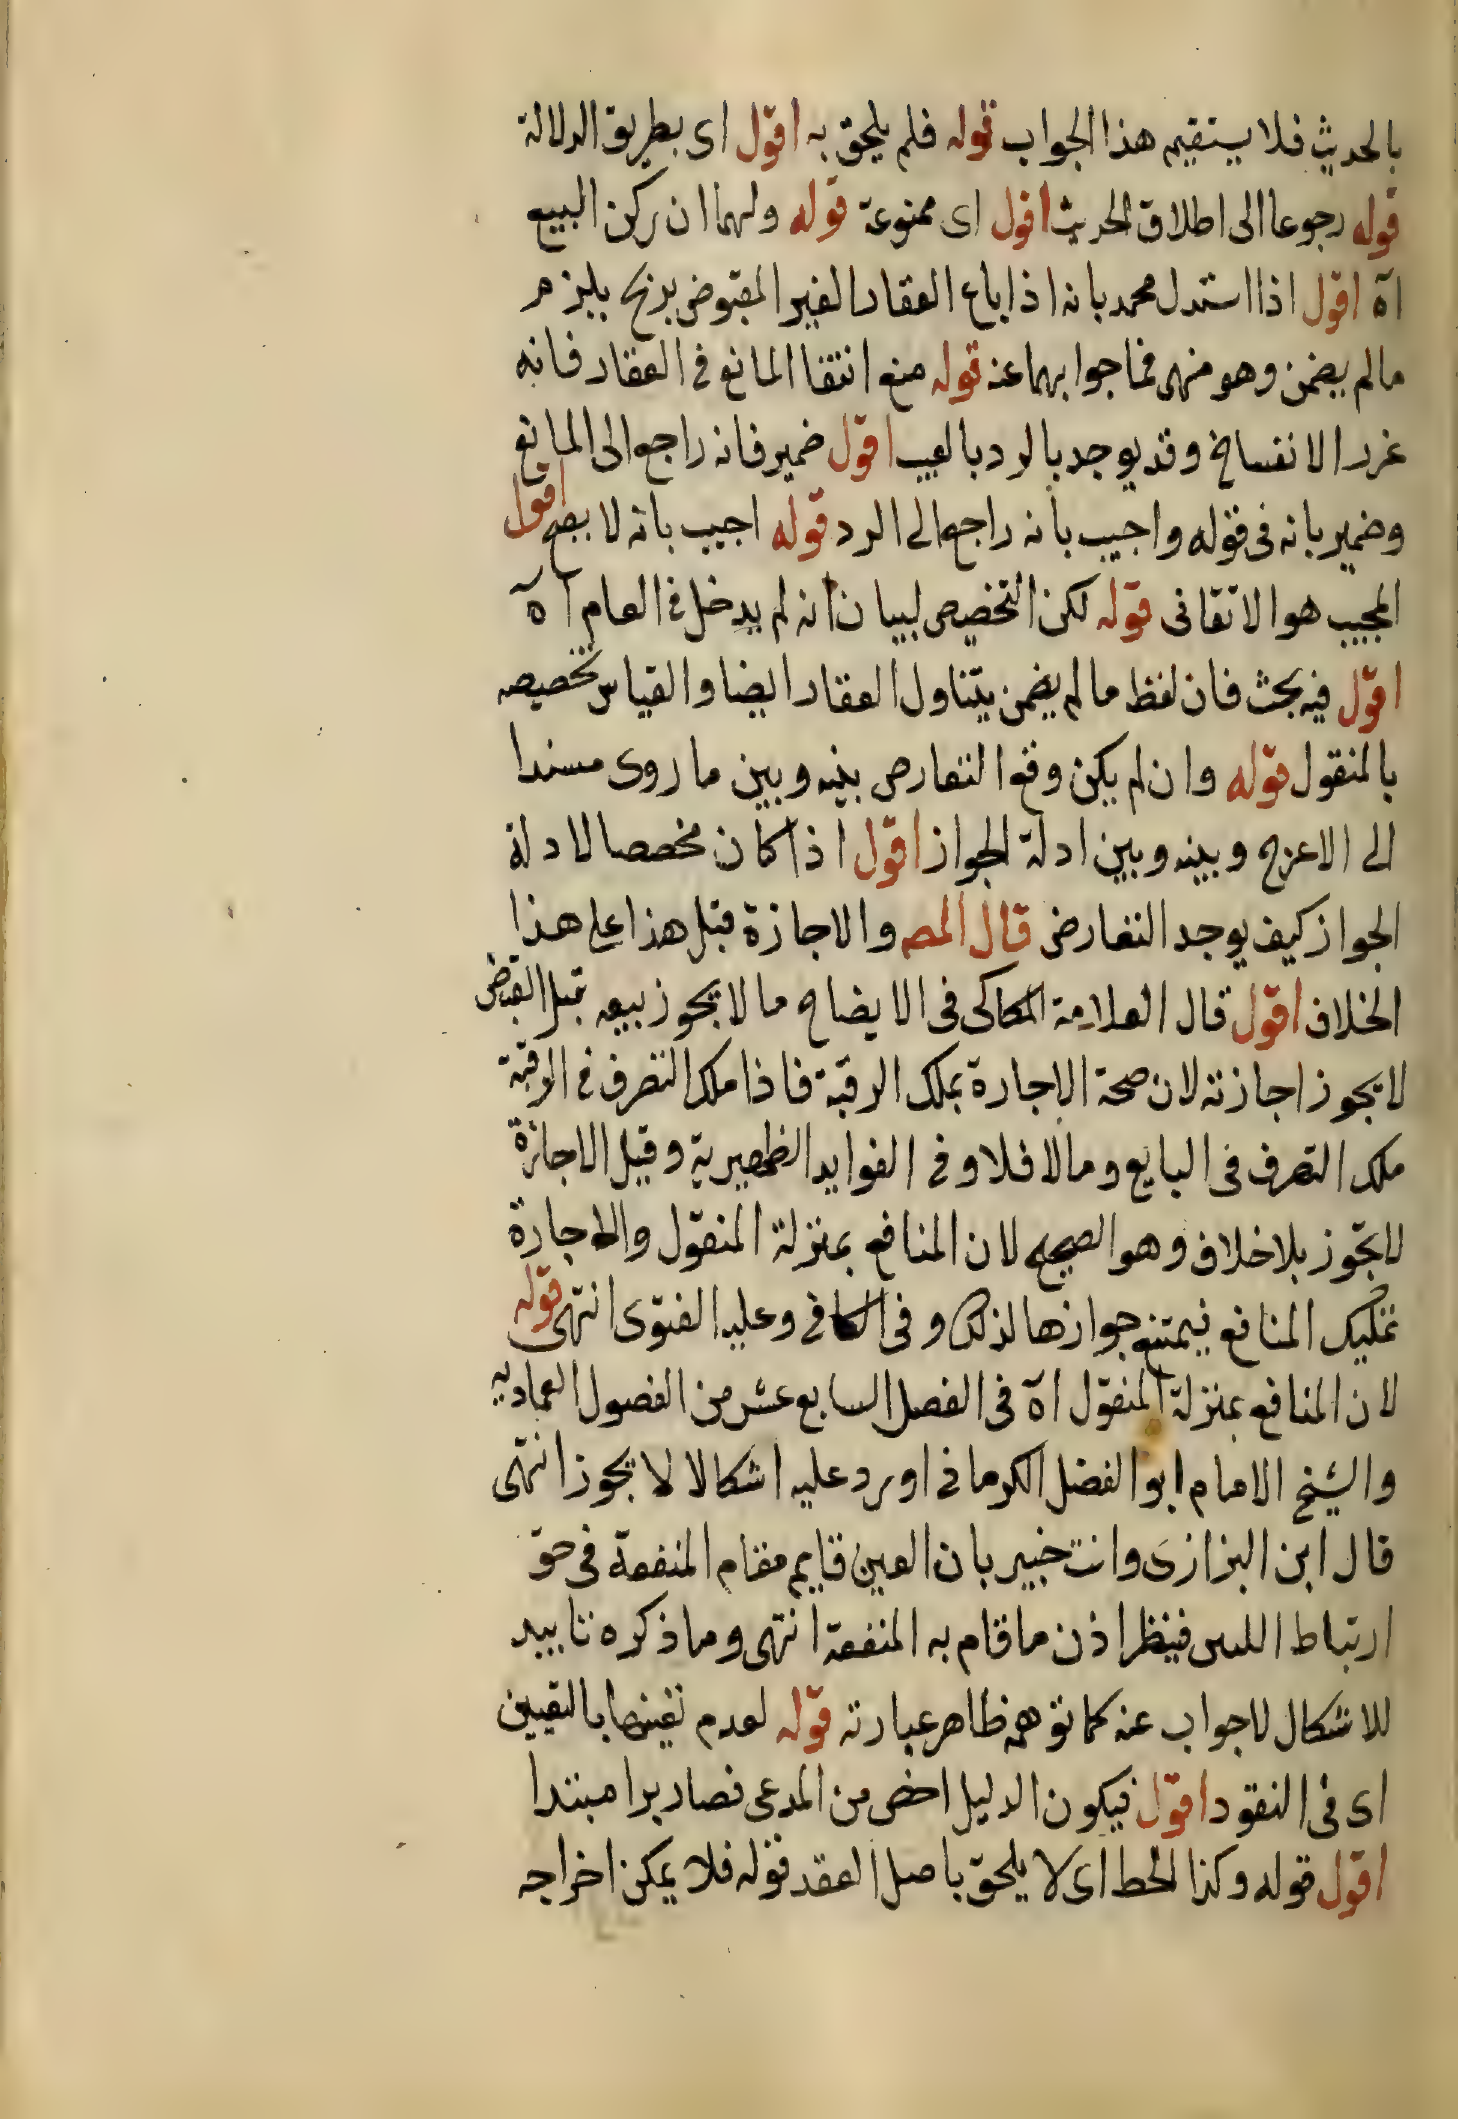 بالحديث فلا يستقيم هذا الجواب قوله فلم يلحق به اقول اى بطريق الدلالة
قوله رجوعا الى اطلاق الحديث اقول اى ممنوعة قوله ولهما ان ركن البيع
اه اقول اذا استدل محمد بانه اذا باع العقار الغير المقبوض بربح يلزم
مالم يضمن وهو منهى فما جوابهما عنه قوله منع انتفا المانع فى العقار فانه
غرر الانفساخ وقد يوجد بالرد بالعيب اقول ضمير فانه راجع الى المانع
وضمير بانه فى قوله واجيب بانه راجع الى الرد قوله اجيب بانه لا يصح اقول
المجيب هو الاتقانى قوله لكن التخصيص لبيان انه لم يدخل فى العام اه
اقول فيه بحث فان لفظ مالم يضمن يتناول العقار ايضا والقياس تخصيصه
بالمنقول قوله وان لم يكن وقع التعارض بينه وبين ما روى مسندا
الى الاعرج وبينه وبين ادلة الجواز اقول اذا كان مخصصا لادلة
الجواز كيف يوجد التعارض قال المصه والاجازة قبل هذا على هذا
الخلاف اقول قال العلامة الكاكى فى الايضاح ما لا يجوز بيعه قبل القبض
لا يجوز اجازته لان صحة الاجارة بملك الرقبة فاذا ملك التصرف فى الرقبة
ملك التصرف فى البايع ومالا فلا وفى الفوايد الظهيرية وقيل الاجازة
لا يجوز بلا خلاف وهو الصحيح لان المنافع بمنزلة المنقول والاجارة
تمليك المنافع فيمتنع جوازها لذلك وفى الكافى وعليه الفتوى انتهى قوله
لان المنافع بمنزلة المنقول اه فى الفصل السابع عشر من الفصول العماديه
والشيخ الامام ابو الفضل الكرمانى اورد عليه اشكالا لا يجوز انتهى
قال ابن البزازى وانت خبير بان العين قايم مقام المنفعة فى حق
ارتباط فينظر اذن ما قام به المنفعة انتهى وما ذكره تاييد
للاشكال لا جواب عنه كما توهمه ظاهر عبارته قوله لعدم تعينها بالتعيين
اى فى النقود اقول فيكون الدليل اخص من المدعى فصار برا مبتدا
اقول قوله وكذا الحط اى لا يلحق باصل العقد قوله فلا يمكن اخراجه